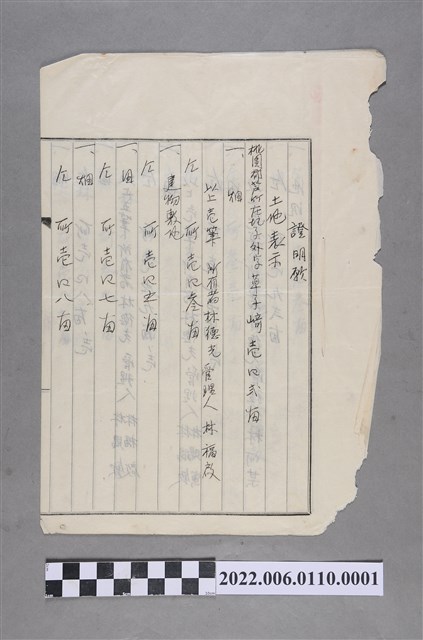 證明願
土地表示
桃園郡蘆竹庄坑子外字草子崎壱〇弍番
一、畑
以上壱筆 所有者林德光管理人林福啟
仝所壱〇叁番
一、建物敷地
仝所壱〇五番
一、田
仝所壱〇七番
一、畑
仝所壱〇八番
2022.006.0110.0001